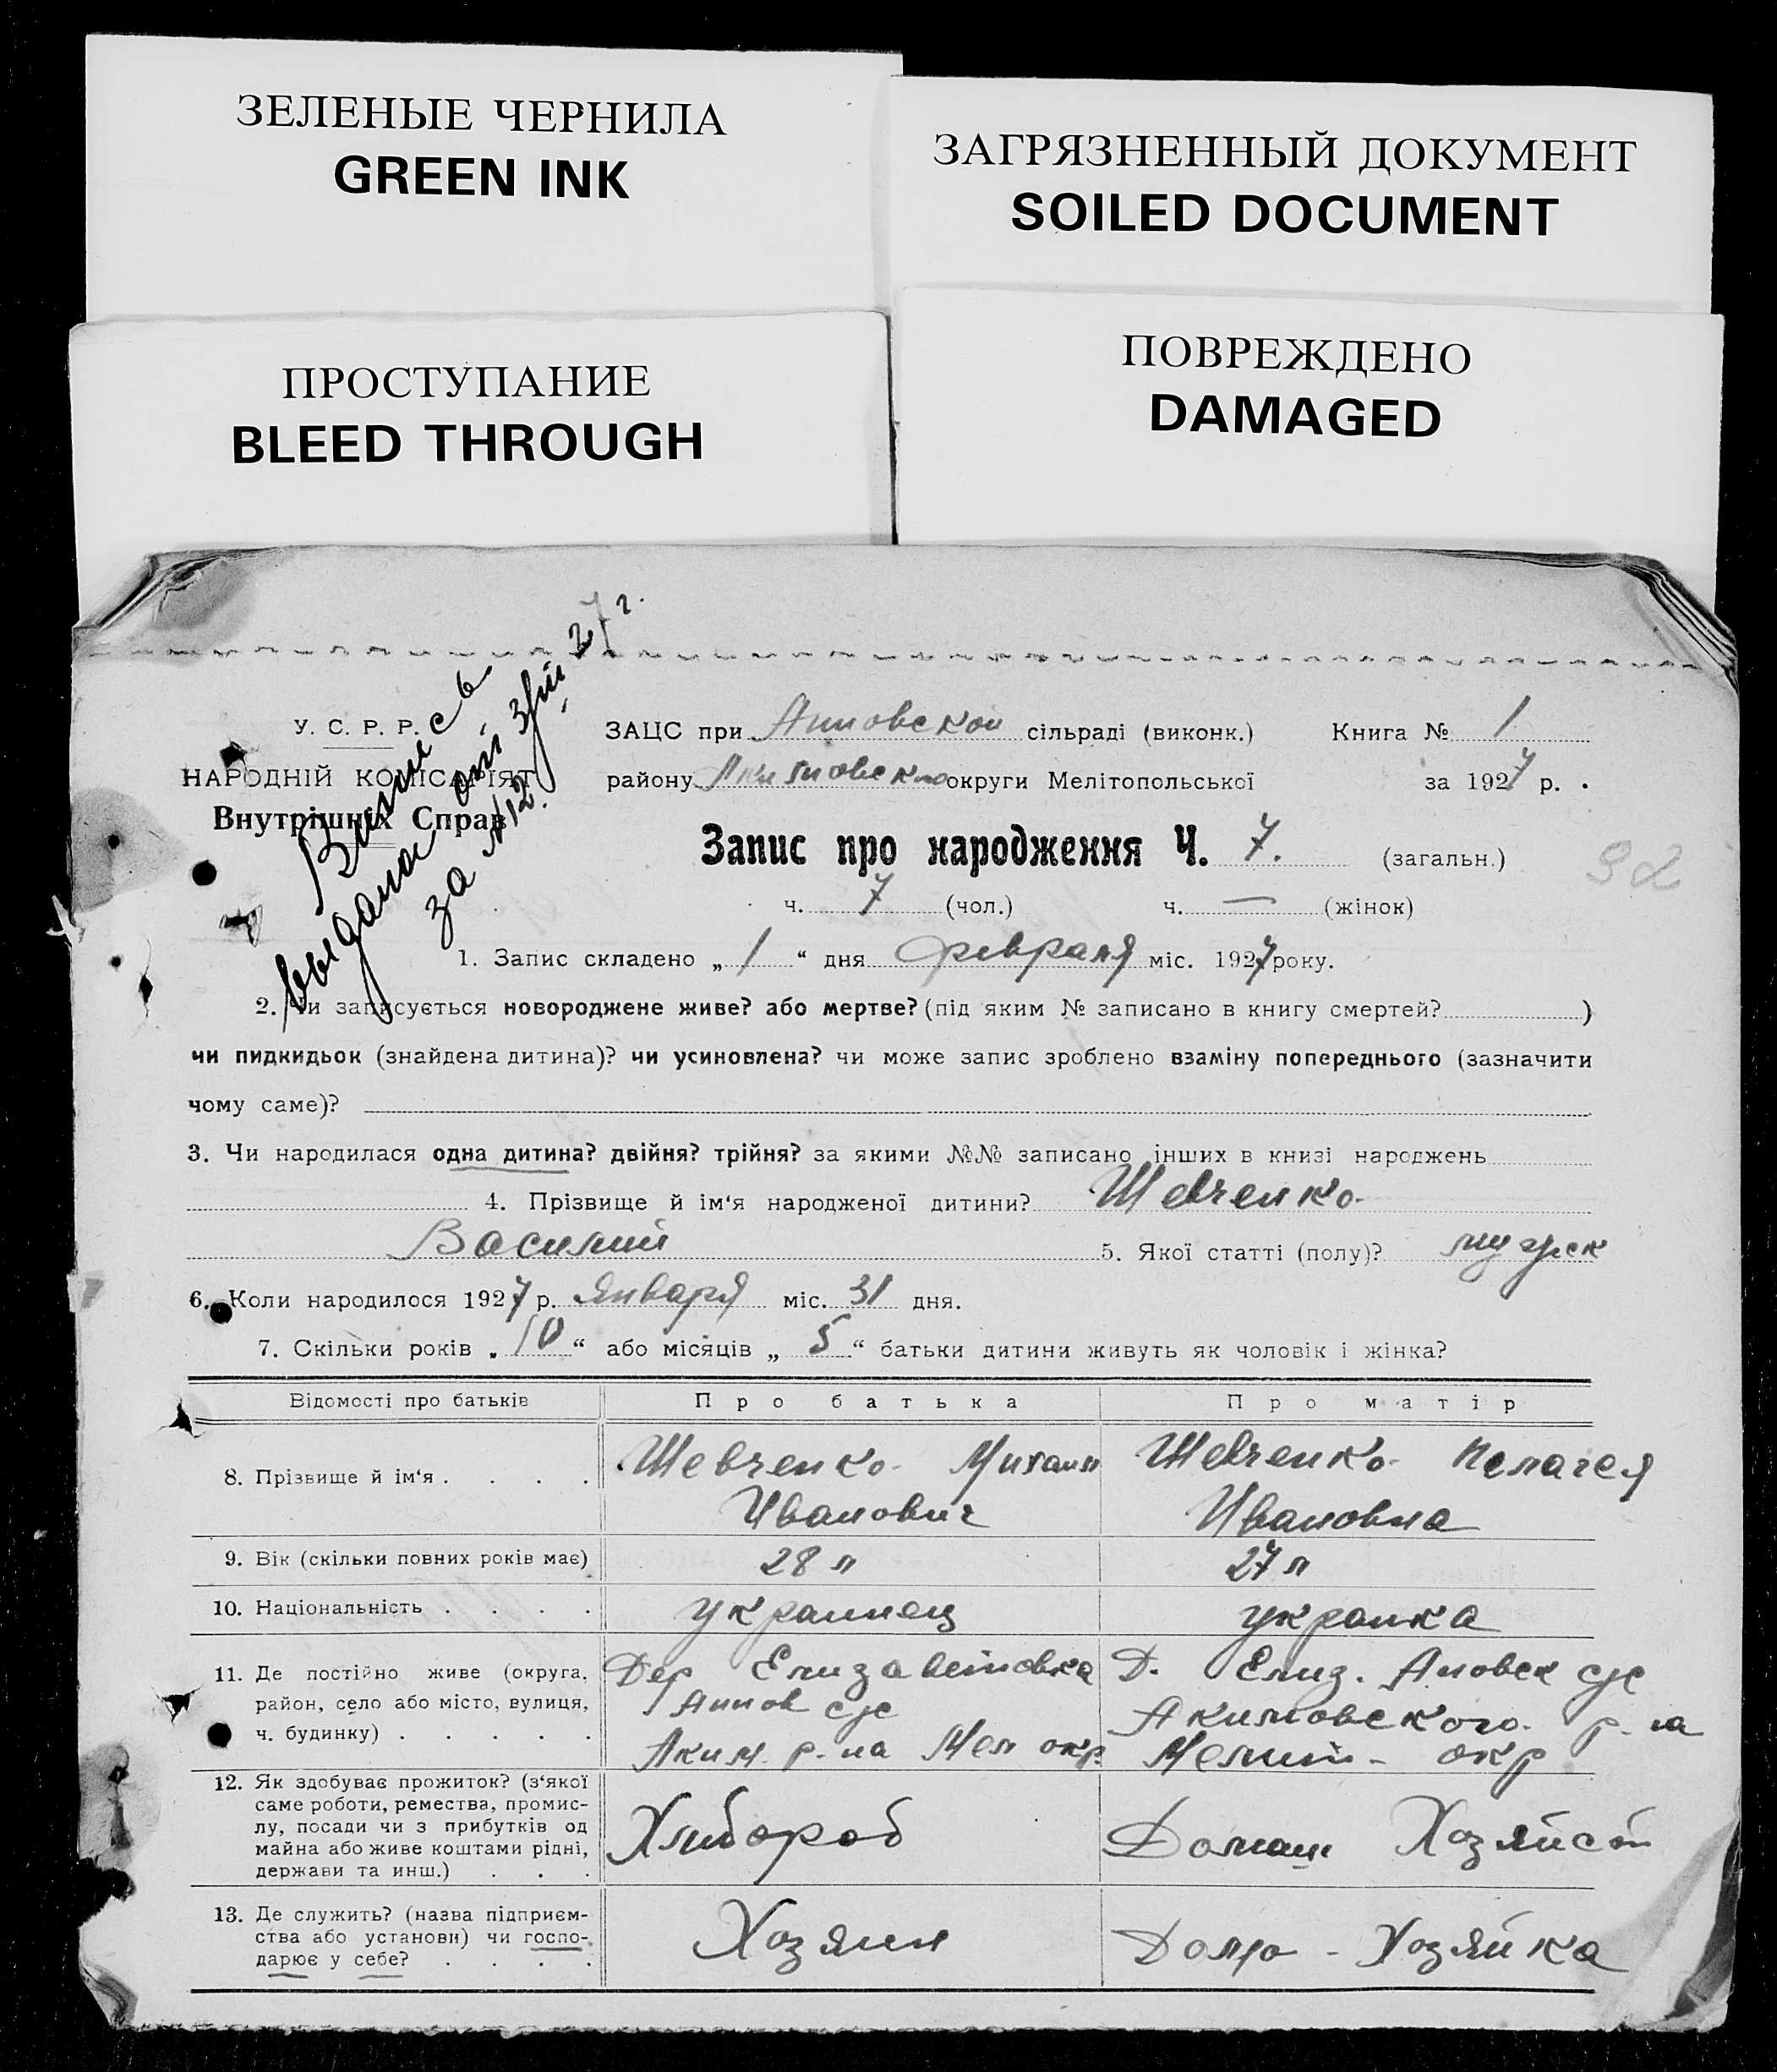 ЗЕЛЕНЫЕ ЧЕРНИЛА
GREEN INK
ЗАГРЯЗНЕННЫЙ ДОКУМЕНТ
SOILED DOCUMENT
ПРОСТУПАНИЕ
BLEED THROUGH
ПОВРЕЖДЕНО
DAMAGED
Випись
выдана от 27 г.
за №12.
У. С. Р. Р.
НАРОДНІЙ КОМІСАРІЯТ
Внутрішніх Справ
ЗАЦС при Анновской сільраді (виконк.) Книга № 1
району Акимовско округи Мелітопольської за 1927 р.
Запис про народження Ч. 7. (загальн.)
92
ч. 7 (чол.) ч. — (жінок)
1. Запис складено „ 1 “ дня февраля міс. 1927 року.
2. Чи записується новороджене живе? або мертве? (під яким № записано в книгу смертей? )
чи пидкидьок (знайдена дитина)? чи усиновлена? чи може запис зроблено взаміну попереднього (зазначити
чому саме)?
3. Чи народилася одна дитина? двійня? трійня? за якими №№ записано інших в книзі народжень
4. Прізвище й ім‘я народженої дитини? Шевченко
Василий 5. Якої статті (полу)? мужск
6. Коли народилося 1927 р. января міс. 31 дня.
7. Скільки років „ 10 “ або місяців „ 5 “ батьки дитини живуть як чоловік і жінка?
Відомості про батьків Про батька Про матір
8. Прізвище й ім‘я . . . . Шевченко Михаил Шевченко Пелагея
Иванович Ивановна
9. Вік (скільки повних років має) 28 л 27 л
10. Національність . . . . украинец украинка
11. Де постійно живе (округа, Дер Елизаветовка Д. Елиз. Ановск с/с
район, село або місто, вулиця, Аннов с/с Акимовского р-на
ч. будинку) . . . . . Аким. р-на Мел окр. Мелит- окр
12. Як здобуває прожиток? (з‘якої
саме роботи, ремества, промис-
лу, посади чи з прибутків од Хлибороб Домаш Хозяйст
майна або живе коштами рідні,
держави та инш.) . . .
13. Де служить? (назва підприєм-
ства або установи) чи госпо- Хозяин Домо - Хозяйка
дарює у себе? . . . .